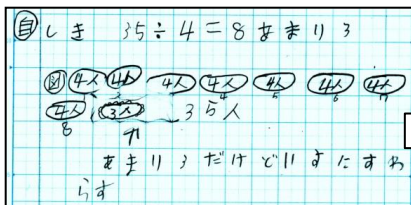 自 しき 35÷4=8あまり3
図 4人 4人 4人 4人 4人 4人 4人
4 5 6 7
4人 3人 35人
8
あまり3だけどいすにすわ
らす